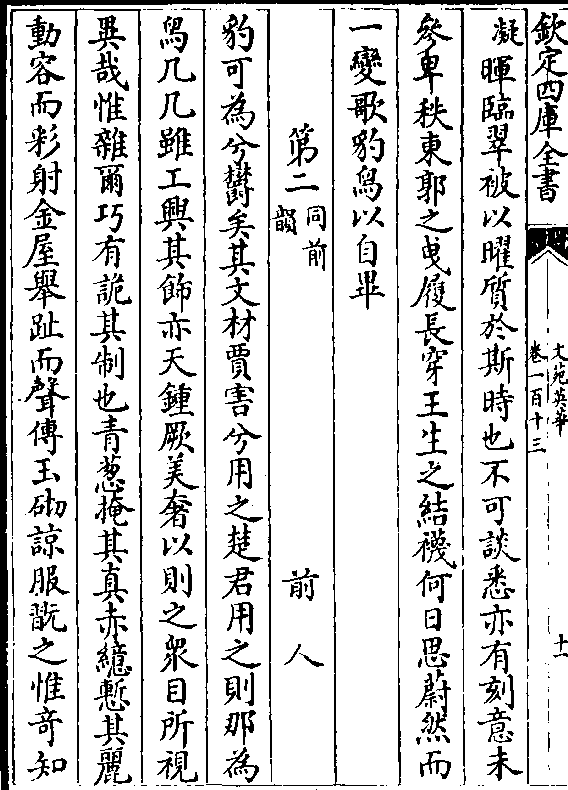 欽定四庫全書
文苑英華
卷一百十三
十一
凝暉臨翠被以曜質於斯時也不可談悉亦有刻意未
參卑秩東郭之曵履長穿王生之結襪何日思蔚然而
一變歌豹舄以自畢
第二同前韻
前人
豹可為兮欝矣其文材賈害兮用之楚君用之則那為
舄几几雖工興其飾亦天鍾厥美奢以則之衆目所視
異哉惟雜爾巧有詭其制也青葱掩其真赤繶慙其麗
動容而彩射金屋舉趾而聲傳玉砌諒服翫之惟竒知